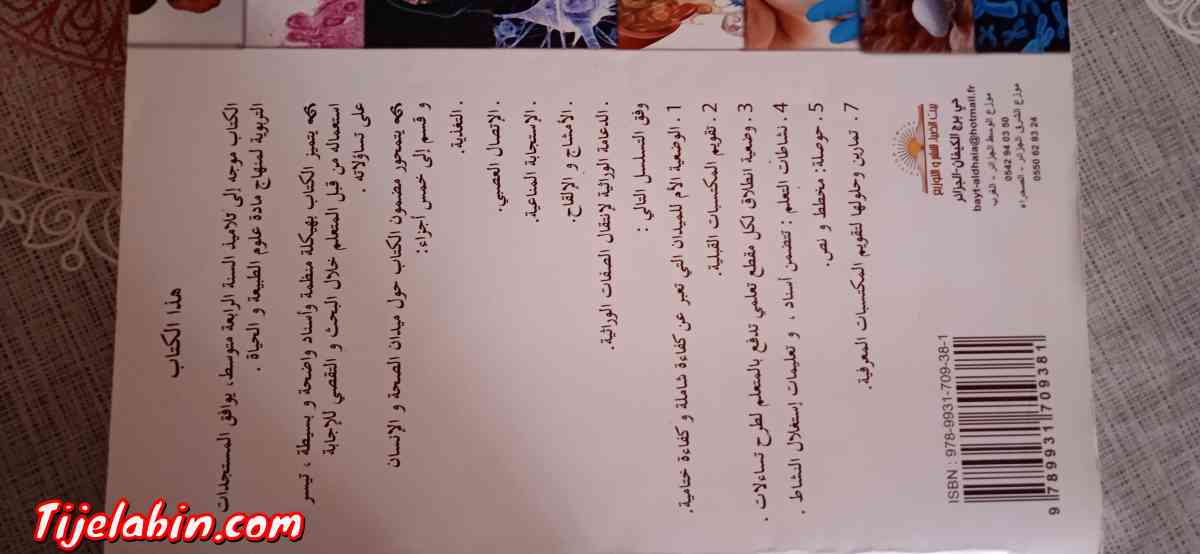 هذا الكتاب
الكتاب موجه إلى تلاميذ السنة الرابعة متوسط، يوافق المستجدات
التربوية لمنهاج مادة علوم الطبيعة و الحياة .
يتميز الكتاب بهيكلة منظمة وأسناد واضحة و بسيطة ، تيسر
استعماله من قبل المتعلم خلال البحث و التقصي للإجابة
على تساؤلاته .
يتمحور مضمون الكتاب حول ميدان الصحة و الإنسان
و قسم إلى خمس أجزاء:
. التغذية.
. الإتصال العصبي.
. الإستجابة المناعية.
. الأمشاج و الإلقاح.
. الدعامة الوراثية لإنتقال الصفات الوراثية.
وفق التسلسل التالي :
1 . الوضعية الأم للميدان التي تعبر عن كفاءة شاملة و كفاءة ختامية.
2 . تقويم المكتسبات القبلية.
3 . وضعية انطلاق لكل مقطع تعلمي تدفع بالمتعلم لطرح تساءلات .
4 . نشاطات التعلم : تتضمن أسناد ، و تعليمات إستغلال النشاط .
5 . حوصلة: مخطط و نص.
7 . تمارين وحلولها لتقويم المكتسبات المعرفية.
حي برج الكيفان-الجزائر
bayt-aldhala@hotmail.fr
موزع الوسط الجزائر - الغرب
0542 94 03 50
موزع الشرق الجزائر - الصحراء
0550 62 93 24
ISBN : 978-9931-709-38-1
9 789931 709381
Tijelabin.com